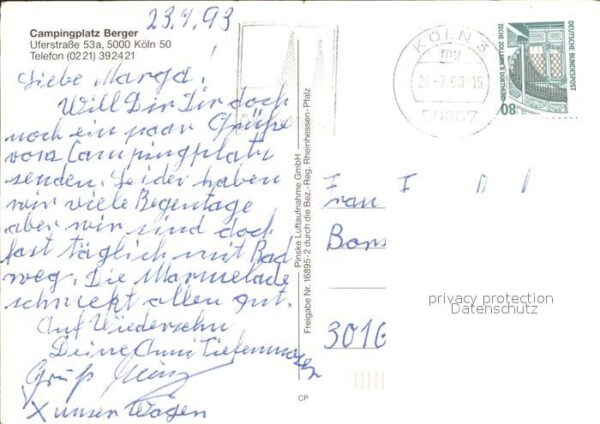 23.7.93
Campingplatz Berger
Uferstraße 53a, 5000 Köln 50
Telefon (0221) 392421
Liebe Marga!
Will Dir Dir doch
noch ein paar Grüße
vom Campingplatz
senden. Leider haben
wir viele Regentage
aber wir sind doch
fast täglich mit Rad
weg. Die Marmelade
schmekt allen gut.
Auf Wiedersehn
Deine Anni Tiefenmoser
Gruß Heinz
X unser Wagen
Pinske Luftaufnahme GmbH
Freigabe Nr. 16895-2 durch die Bez.-Reg. Rheinhessen-Pfalz
CP
KÖLN 3
mg
50667
DEUTSCHE BUNDESPOST
ZECHE ZOLLERN II DORTMUND
80
Frau
3016
privacy protection
Datenschutz